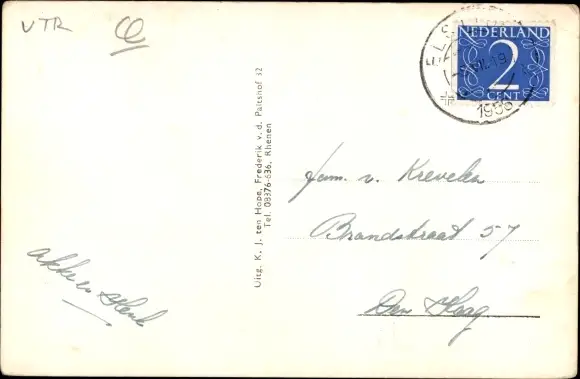 VTR
NEDERLAND
2
CENT
1956
Uitg. K. J. ten Hope, Frederik v. d. Paltshof 32
Tel. 08376-636, Rhenen
Fam. v. Krevelen
Brandstraat 57
Den Haag
Akke en Henk